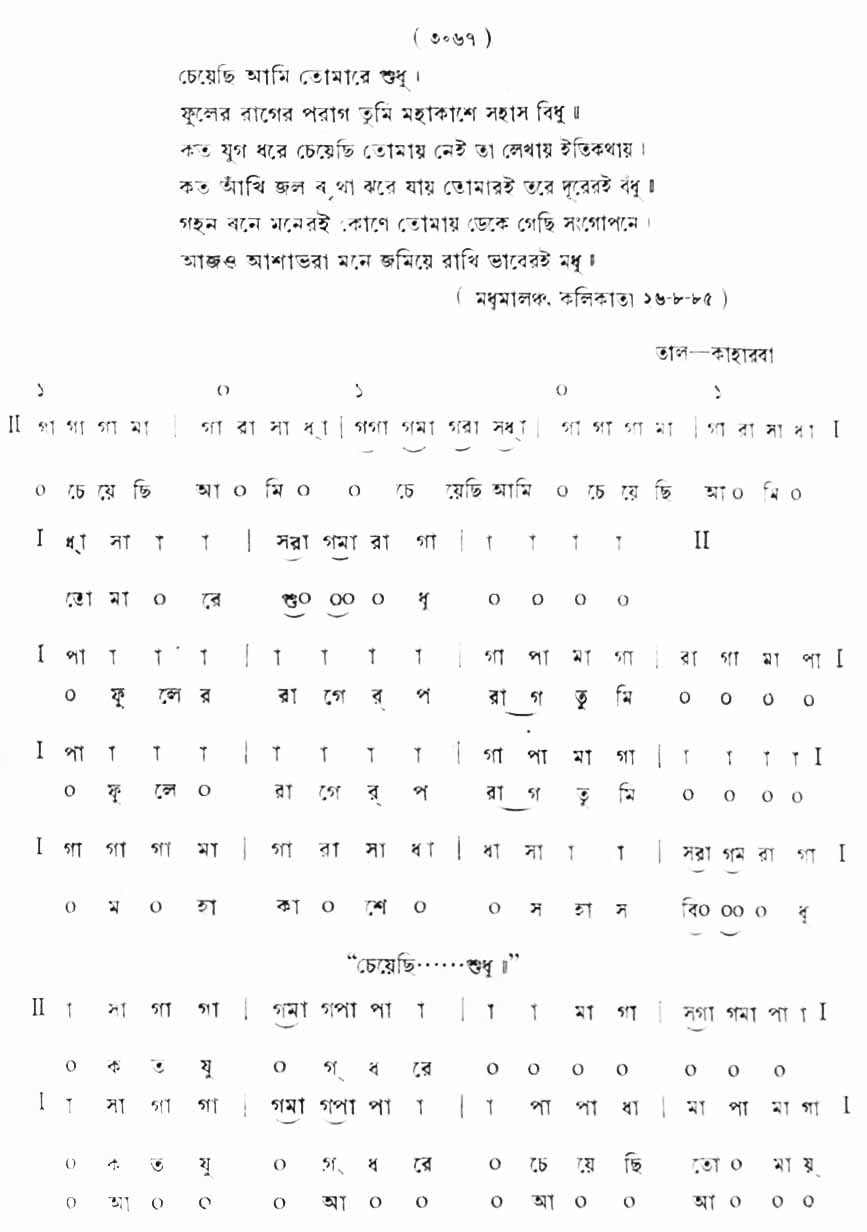 ( ৩০৬৭ )
চেয়েছি আমি তোমারে শুধু ।
ফুলের রাগের পরাগ তুমি মহাকাশে সহাস বিধু ॥
কত যুগ ধরে চেয়েছি তোমায় নেই তা লেখায় ইতিকথায় ।
কত আঁখি জল বৃথা ঝরে যায় তোমারই তরে দূরেরই বঁধু ॥
গহন বনে মনেরই কোণে তোমায় ডেকে গেছি সংগোপনে ।
আজও আশাভরা মনে জমিয়ে রাখি ভাবেরই মধু ॥
( মধুমালঞ্চ, কলিকাতা ১৬-৮-৮৫ )
তাল—কাহারবা
১ ০ ১ ০ ১
II গা গা গা মা | গা রা সা ধ্া | গগা গমা গরা সধ্া | গা গা গা মা | গা রা সা ধা I
০ চে য়ে ছি আ ০ মি ০ ০ চে য়েছি আমি ০ চে য়ে ছি আ ০ মি ০
I ধ্া সা া া | সরা গমা রা গা | া া া া II
তো মা ০ রে শু০ ০০ ০ ধু ০ ০ ০ ০
I পা া া া | া া া া | গা পা মা গা | রা গা মা পা I
০ ফু লে র রা গে র্ প রা গ তু মি ০ ০ ০ ০
I পা া া া | া া া া | গা পা মা গা | া া া া I
০ ফু লে ০ রা গে র্ প রা গ তু মি ০ ০ ০ ০
I গা গা গা মা | গা রা সা ধা | ধা সা া া | সরা গম রা গা I
০ ম ০ হা কা ০ শে ০ ০ স হা স বি০ ০০ ০ ধু
“চেয়েছি······শুধু ॥”
II া সা গা গা | গমা গপা পা া | া া মা গা | সগা গমা পা া I
০ ক ত যু ০ গ্ ধ রে ০ ০ ০ ০ ০ ০ ০
I া সা গা গা | গমা গপা পা া | া পা পা ধা | মা পা মা গা I
০ ক ত যু ০ গ্ ধ রে ০ চে য়ে ছি তো ০ মা য়্
০ আ ০ ০ ০ আ ০ ০ ০ আ ০ ০ আ ০ ০ ০